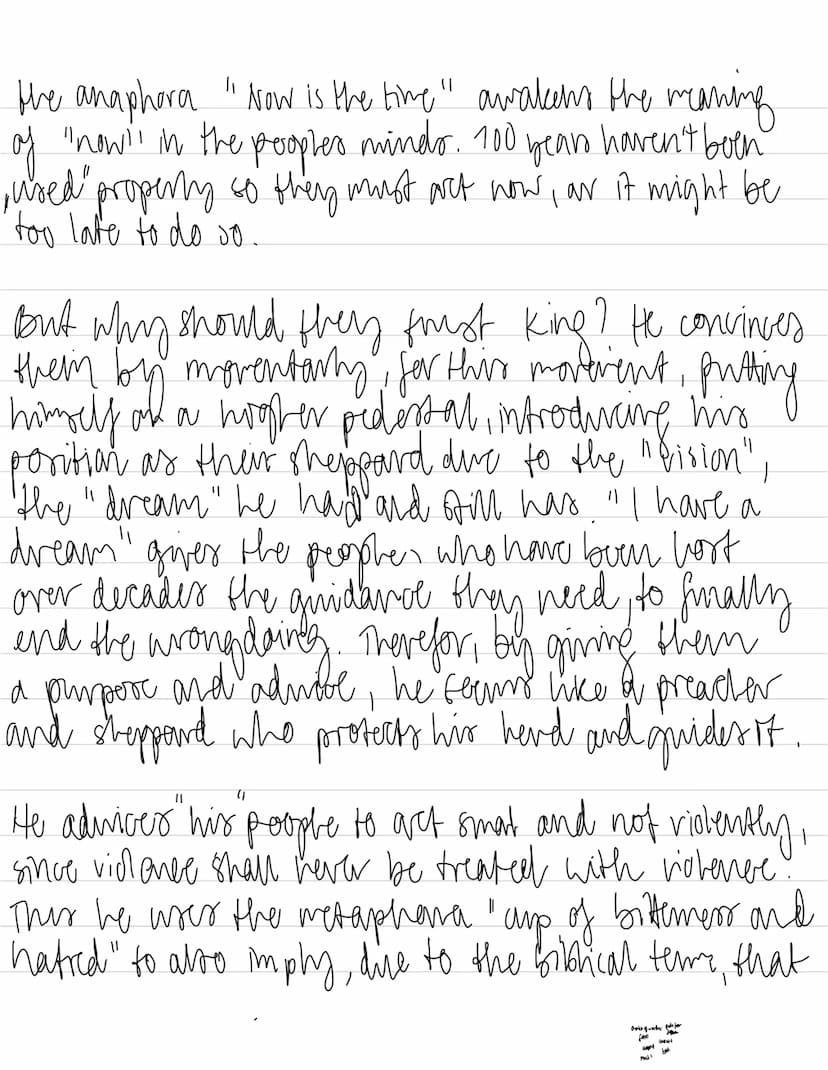 the anaphora "Now is the time" awakens the meaning
of "now" in the peoples minds. 100 years haven't been
„used" properly so they must act now, as it might be
too late to do so.
But why should they trust King? He convinces
them by momentarly, for this movement, putting
himself on a higher pedestal, introducing his
position as their sheppard due to the "vision",
the "dream" he had and still has. "I have a
dream" gives the people, who have been lost
over decades the guidance they need, to finally
end the wrongdoing. Therefor, by giving them
a purpose and advice, he seems like a preacher
and sheppard who protects his herd and guides it.
He advices "his" people to act smart and not violently,
since violence shall never be treated with violence.
Thus he uses the metaphora "cup of bitterness and
hatred" to also imply, due to the biblical term, that